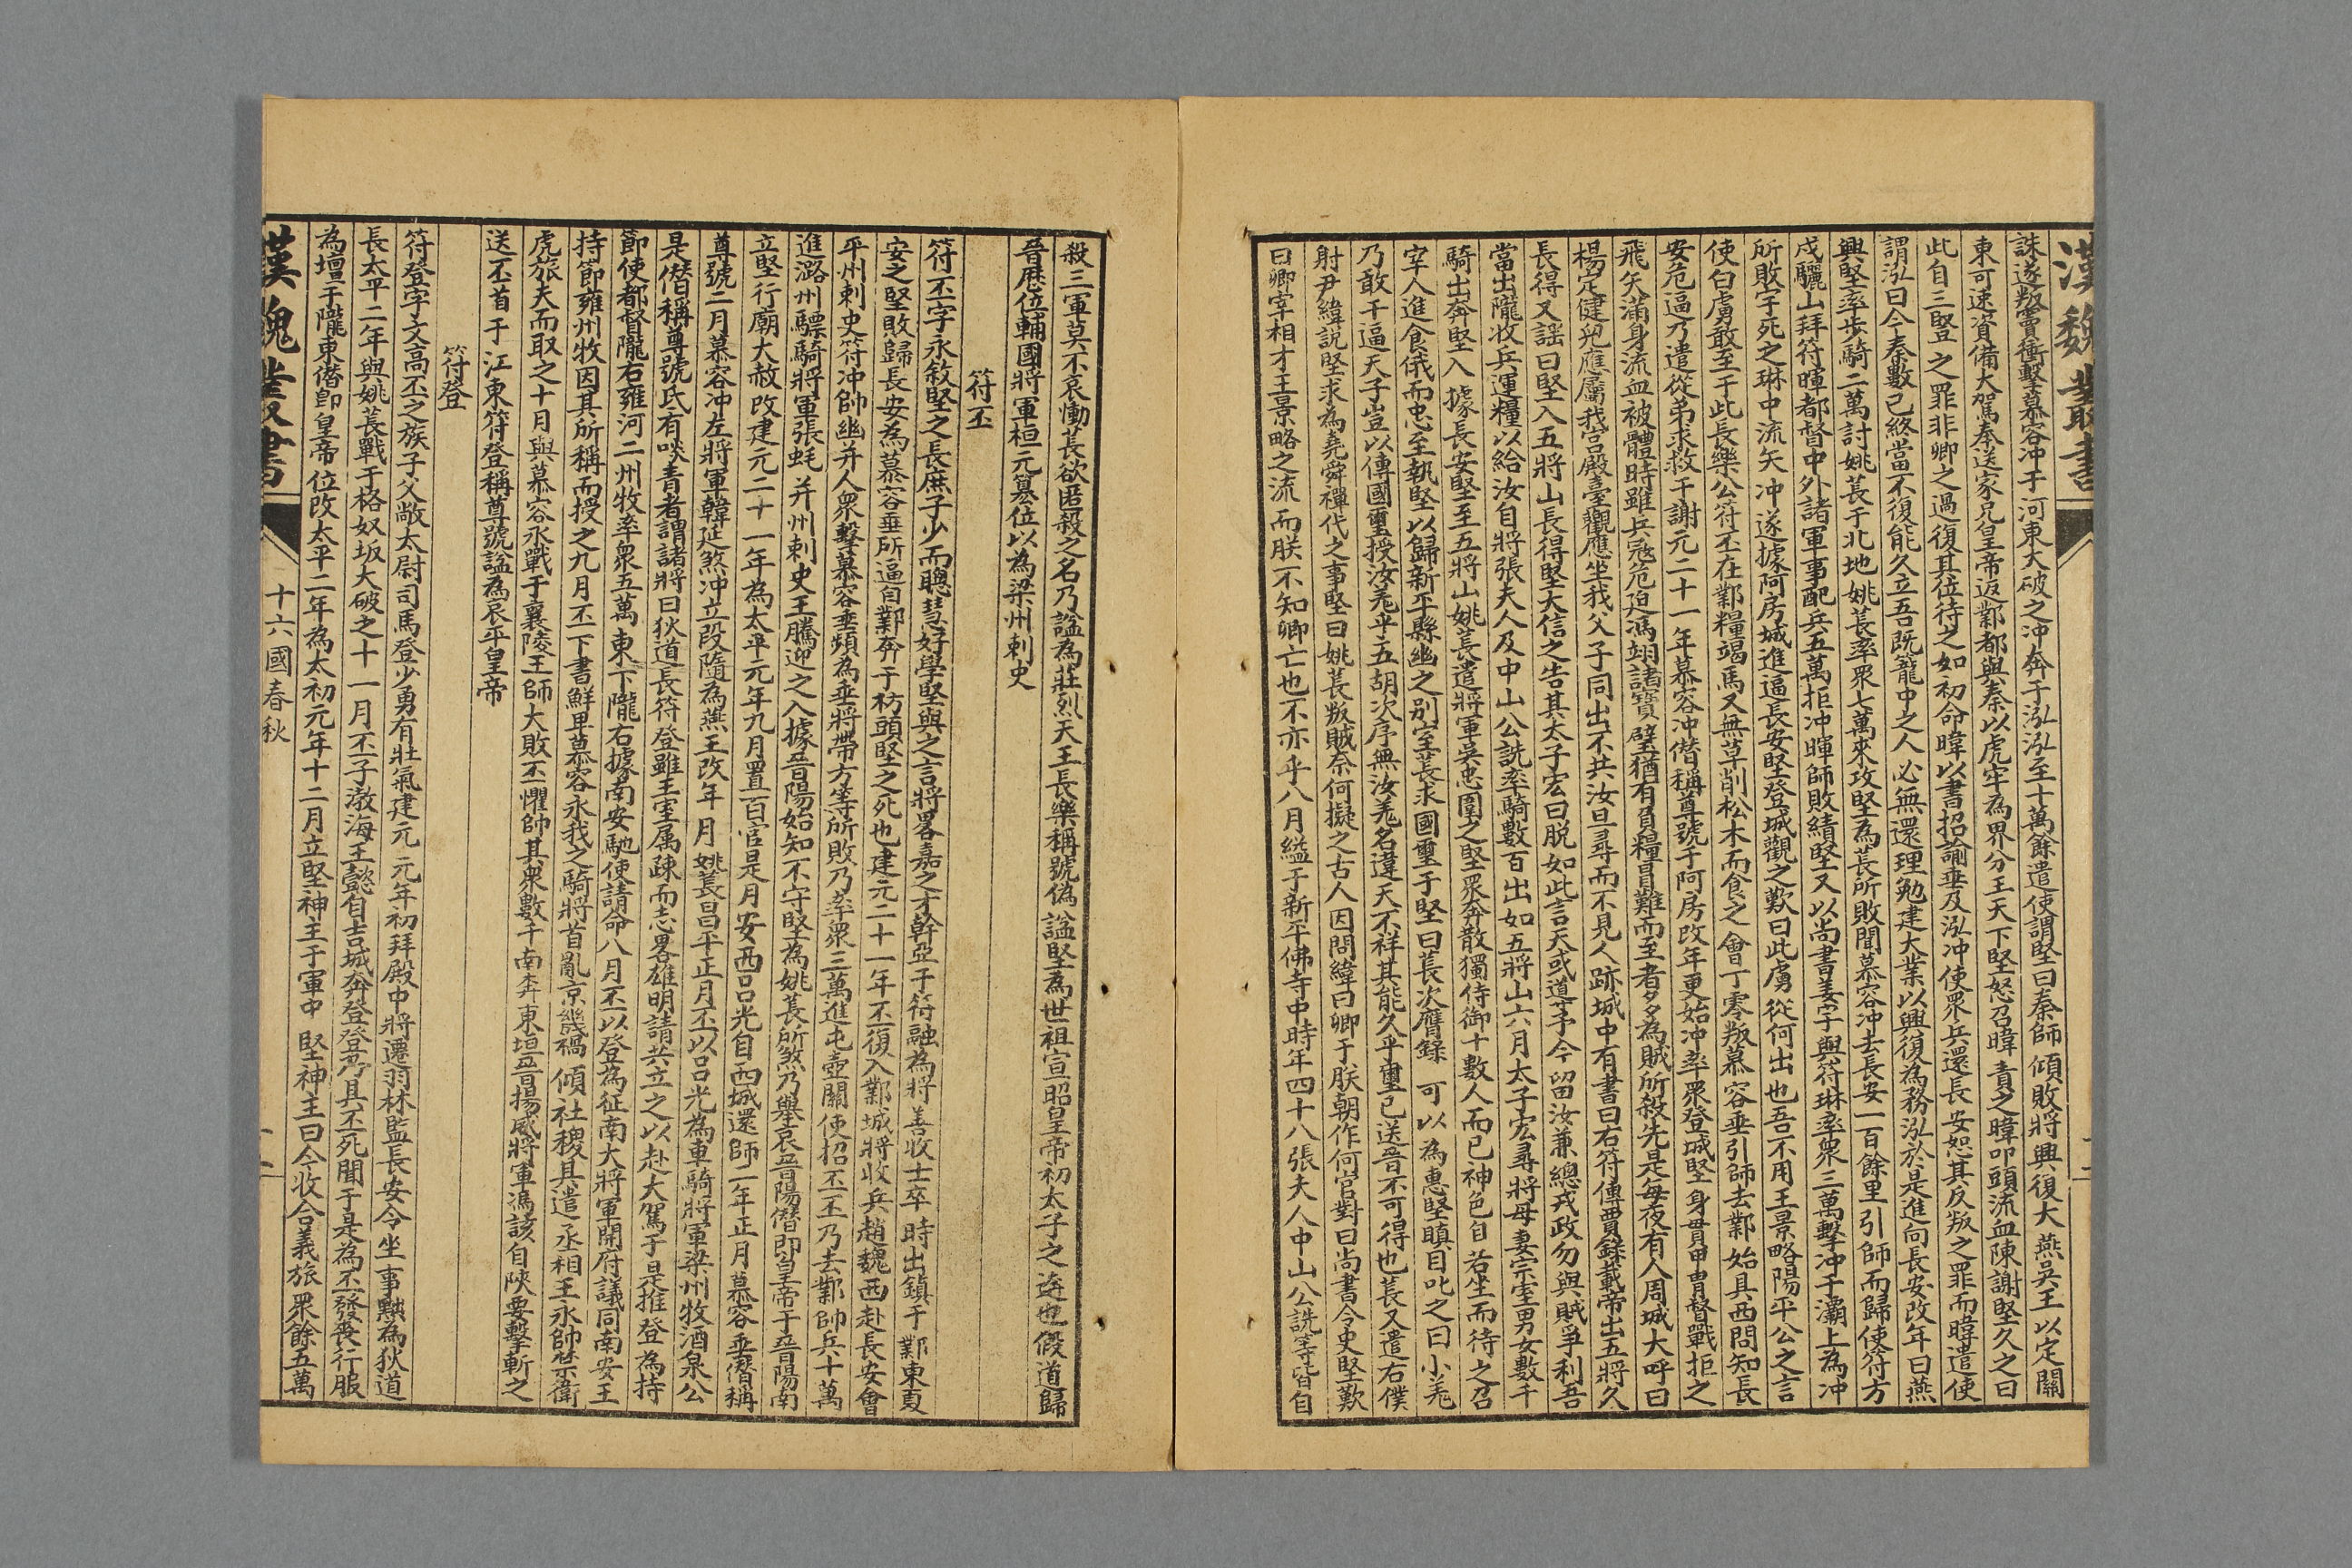 漢魏叢書
誅遂叛賨衝擊慕容沖于河東大破之沖奔于泓泓至十萬餘遣使謂堅曰秦師傾敗將興復大燕吳王以定關
東可速資備大駕奉送家兄皇帝返鄴都與秦以虎牢為界分王天下堅怒召暐責之暐叩頭流血陳謝堅久之曰
此自三豎之罪非卿之過復其位待之如初命暐以書招諭垂及泓沖使眾兵還長安恕其反叛之罪而暐遣使
謂泓曰今秦數已終當不復能久立吾既籠中之人必無還理勉建大業以興復為務泓於是進向長安改年曰燕
興堅率步騎二萬討姚萇于北地姚萇率眾七萬來攻堅為萇所敗聞慕容沖去長安一百餘里引師而歸使符方
戍驪山拜符暉都督中外諸軍事配兵五萬拒沖暉師敗績堅又以尚書姜宇與符琳率眾三萬擊沖于灞上為沖
所敗宇死之琳中流矢沖遂據阿房城進逼長安堅登城觀之歎曰此虜從何出也吾不用王景略陽平公之言
使白虜敢至于此長樂公符丕在鄴糧竭馬又無草削松木而食之會丁零叛慕容垂引師去鄴始具西問知長
安危逼乃遣從弟求救于謝元二十一年慕容沖僭稱尊號于阿房改年更始沖率眾登城堅身貫甲冑督戰拒之
飛矢滿身流血被體時雖兵寇危逼馮翊諸寶壁猶有負糧冒難而至者多為賊所殺先是每夜有人周城大呼曰
楊定健兒應屬我宮殿臺觀應坐我父子同出不共汝旦尋而不見人跡城中有書曰右符傳賈錄載帝出五將久
長得又謠曰堅入五將山長得堅大信之告其太子宏曰脫如此言天或道予今留汝兼總戎政勿與賊爭利吾
當出隴收兵運糧以給汝自將張夫人及中山公詵率騎數百出如五將山六月太子宏尋將母妻宗室男女數千
騎出奔堅入據長安堅至五將山姚萇遣將軍吳忠圍之堅眾奔散獨侍御十數人而已神色自若坐而待之召
宰人進食俄而忠至執堅以歸新平縣幽之別室萇求國璽于堅曰萇次膺錄可以為惠堅瞋目叱之曰小羌
乃敢干逼天子豈以傳國璽授汝羌乎五胡次序無汝羌名違天不祥其能久乎璽已送晉不可得也萇又遣右僕
射尹緯說堅求為堯舜禪代之事堅曰姚萇叛賊奈何擬之古人因問緯曰卿于朕朝作何官對曰尚書令史堅歎
曰卿宰相才王景略之流而朕不知卿亡也不亦乎八月縊于新平佛寺中時年四十八張夫人中山公詵等皆自
殺三軍莫不哀慟長欲匿殺之名乃諡為壯烈天王長樂稱號偽諡堅為世祖宣昭皇帝初太子之逃也假道歸
晉歷位輔國將軍桓元篡位以為梁州刺史
符丕
符丕字永敘堅之長庶子少而聰慧好學堅與之言將畧嘉之才幹亞于符融為將善收士卒時出鎮于鄴東夏
安之堅敗歸長安為慕容垂所逼自鄴奔于枋頭堅之死也建元二十一年丕復入鄴城將收兵趙魏西赴長安會
平州刺史符沖帥幽并人眾擊慕容垂頻為垂將帶方等所敗乃率眾三萬進屯壺關使招丕丕乃去鄴帥兵十萬
進潞州驃騎將軍張蚝并州刺史王騰迎之入據晉陽始知不守堅為姚萇所煞乃舉哀晉陽僭即皇帝于晉陽南
立堅行廟大赦改建元二十一年為太平元年九月置百官是月安西呂光自西城還師二年正月慕容垂僭稱
尊號二月慕容沖左將軍韓延煞沖立段隨為燕王改年月姚萇昌平正月丕以呂光為車騎將軍梁州牧酒泉公
是僭稱尊號氏有啖青者謂諸將曰狄道長符登雖王室属疎而志畧雄明請共立之以赴大駕于是推登為持
節使都督隴右雍河二州牧率眾五萬東下隴右據南安馳使請命八月丕以登為征南大將軍開府議同南安王
持節雍州牧因其所稱而授之九月丕下書鮮卑慕容永我之騎將首亂京畿禍傾社稷其遣丞相王永帥禁衛
虎旅夫而取之十月與慕容永戰于襄陵王師大敗丕懼帥其眾數千南奔東垣晉揚威將軍馮該自陝要擊斬之
送丕首于江東符登稱尊號諡為哀平皇帝
符登
符登字文高丕之族子父敞太尉司馬登少勇有壯氣建元元年初拜殿中將遷羽林監長安令坐事黜為狄道
長太平二年與姚萇戰于格奴坂大破之十一月丕子渤海王懿自吉城奔登登乃具丕死聞于是為丕發喪行服
為壇于隴東僭即皇帝位改太平二年為太初元年十二月立堅神主于軍中堅神主曰今收合義旅眾餘五萬
漢魏叢書
十六國春秋